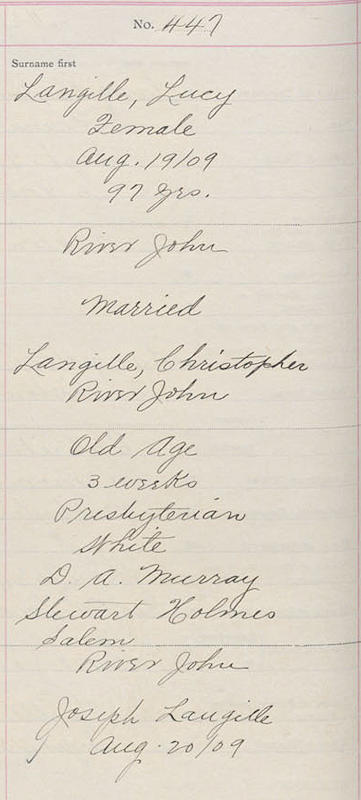 No. 447
Surname first
Langille, Lucy
Female
Aug. 19/09
97 yrs.
River John
Married
Langille, Christopher
River John
Old Age
3 weeks
Presbyterian
White
D. A. Murray
Stewart Holmes
Salem
River John
Joseph Langille
Aug. 20/09